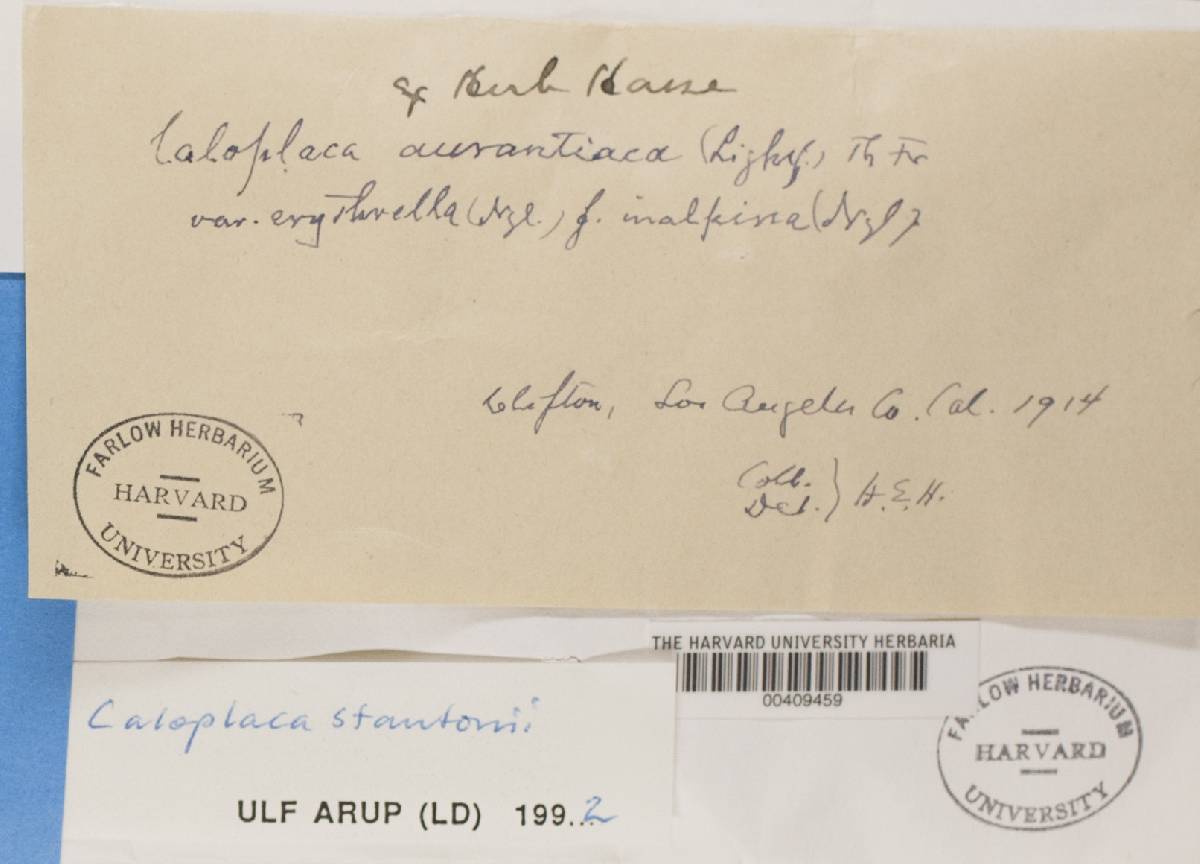 ex Herb Hasse
Caloplaca aurantiaca (Lightf.) Th Fr
var. erythrella (Nyl.) f. inalpina (Nyl)
Clifton, Los Angeles Co. Cal. 1914
Coll.
Det. } H.E.H.
FARLOW HERBARIUM
HARVARD
UNIVERSITY
THE HARVARD UNIVERSITY HERBARIA
00409459
Caloplaca stantonii
ULF ARUP (LD) 199..2
FARLOW HERBARIUM
HARVARD
UNIVERSITY